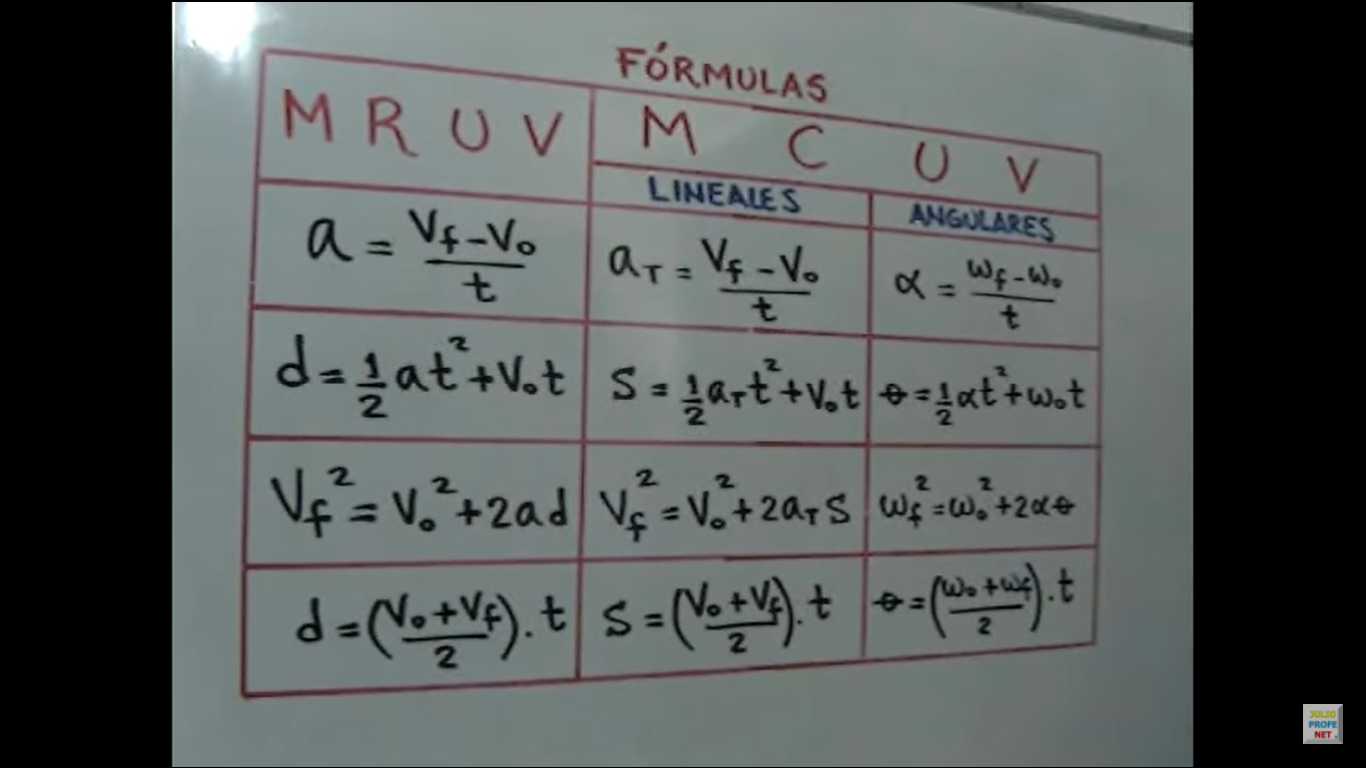 FÓRMULAS
M R U V
M C U V
LINEALES
ANGULARES
a = (Vf - V₀)/t
aT = (Vf - V₀)/t
α = (ωf - ω₀)/t
d = ½at² + V₀t
S = ½aTt² + V₀t
θ = ½αt² + ω₀t
Vf² = V₀² + 2ad
Vf² = V₀² + 2aTS
ωf² = ω₀² + 2αθ
d = ((V₀ + Vf)/2) . t
S = ((V₀ + Vf)/2) . t
θ = ((ω₀ + ωf)/2) . t
JULIO
PROFE
NET